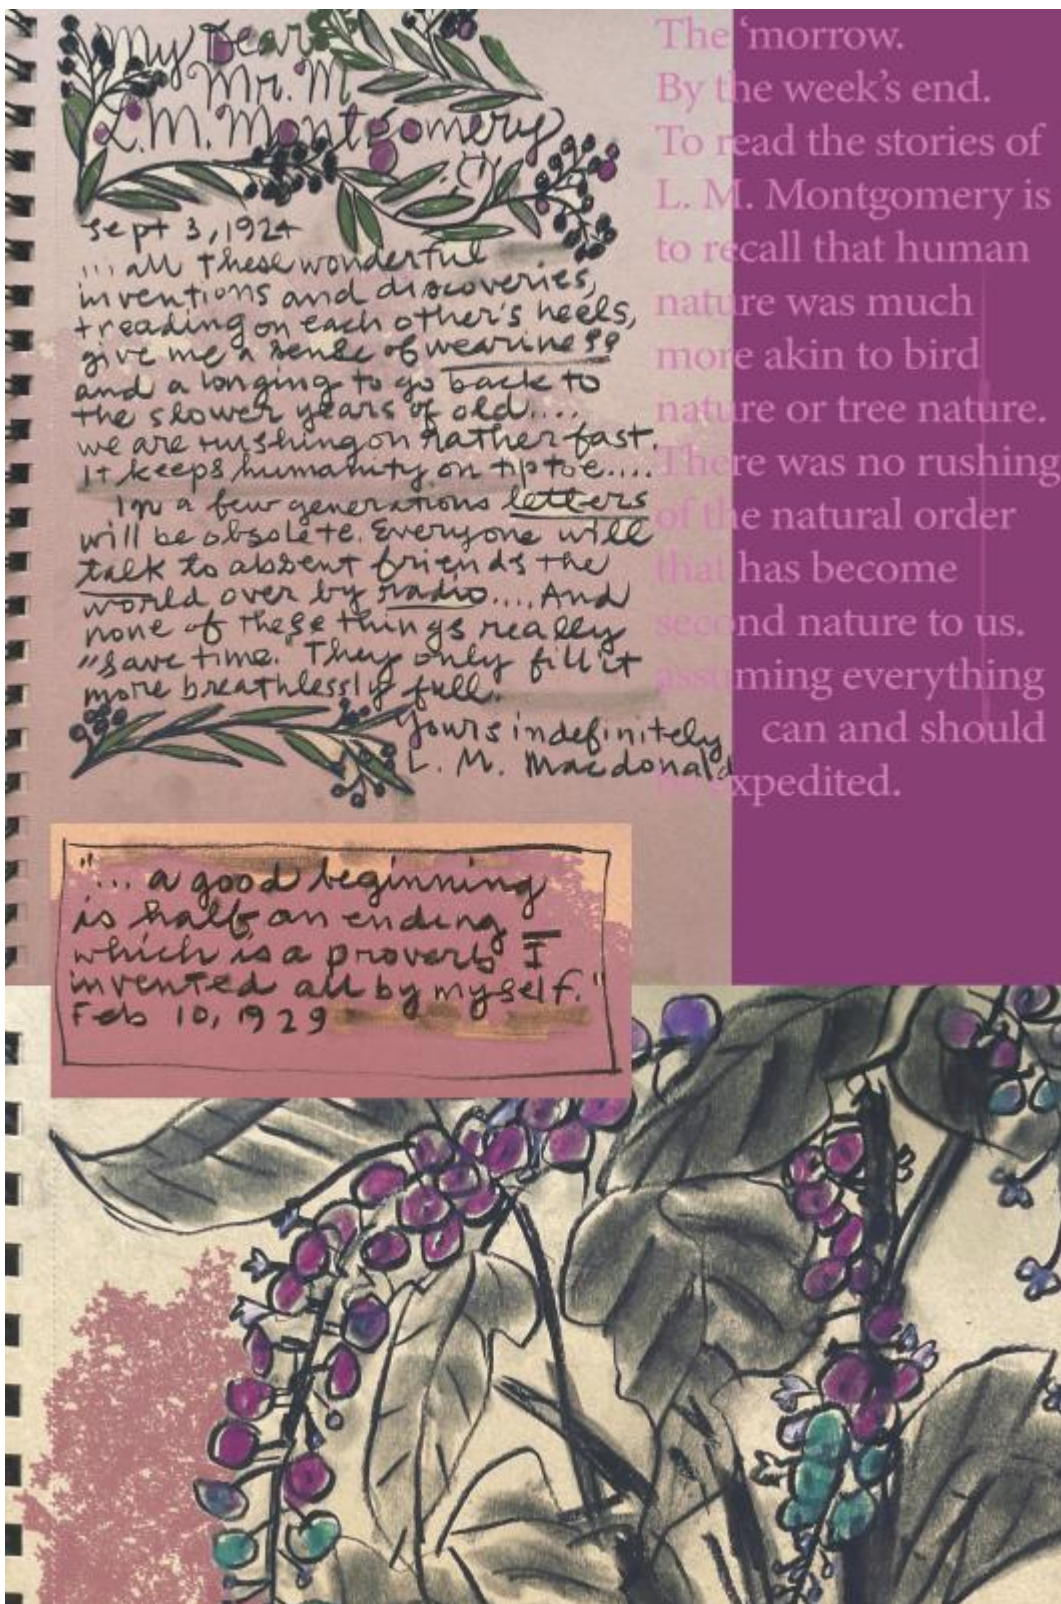 My Dear
Mr. M
L.M. Montgomery
Sept 3, 1924
...all these wonderful
inventions and discoveries,
treading on each other's heels,
give me a sense of weariness
and a longing to go back to
the slower years of old....
we are rushing on rather fast.
It keeps humanity on tiptoe....
In a few generations letters
will be obsolete. Everyone will
talk to absent friends the
world over by radio.... And
none of these things really
"save time." They only fill it
more breathlessly full.
Yours indefinitely
L. M. Macdonald
"... a good beginning
is half an ending
which is a proverb I
invented all by myself."
Feb 10, 1929
The ‘morrow.
By the week’s end.
To read the stories of
L. M. Montgomery is
to recall that human
nature was much
more akin to bird
nature or tree nature.
There was no rushing
of the natural order
that has become
second nature to us.
assuming everything
can and should
expedited.